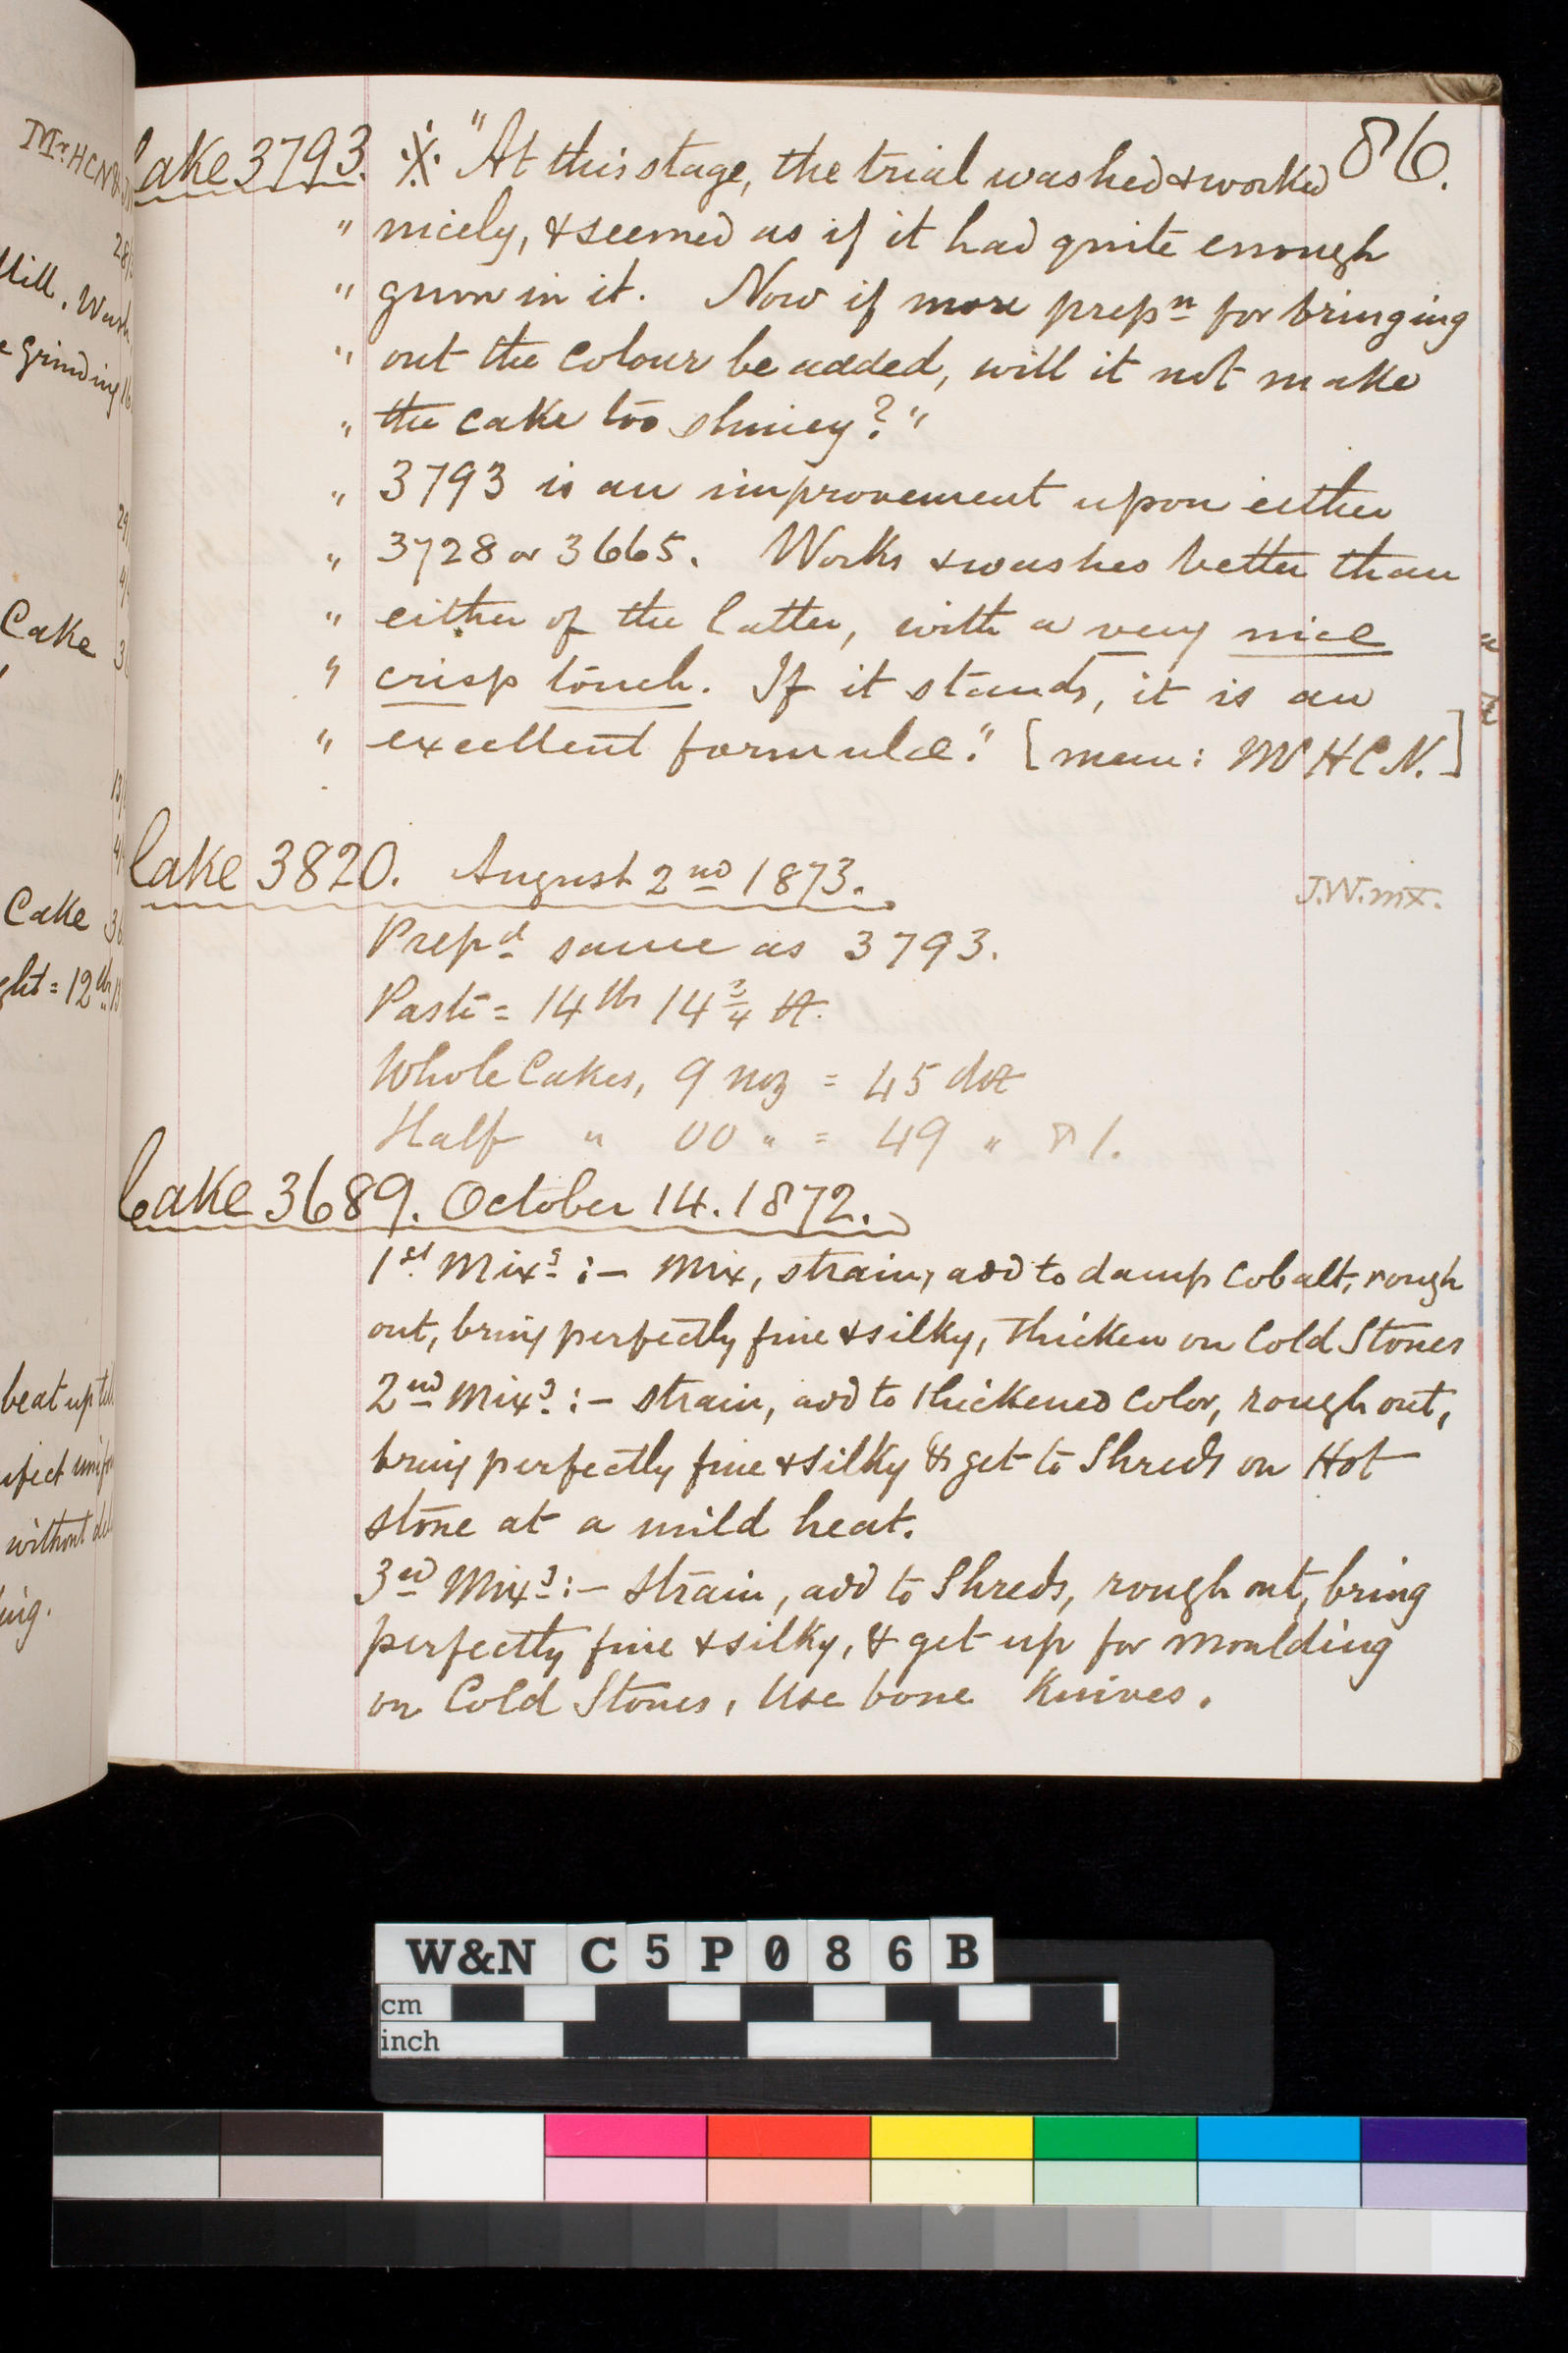 86.
Cake 3793. ※ "At this stage, the trial washed & worked
" nicely, & seemed as if it had quite enough
" gum in it. Now if more prepn for bringing
" out the colour be added, will it not make
" the cake too shiney?"
" 3793 is an improvement upon either
" 3728 or 3665. Works & washes better than
" either of the latter, with a very nice
" crisp touch. If it stands, it is an
" excellent formulae." [mem: Mr HCN.]
Cake 3820. August 2nd 1873.
J.W. mx.
Prepd same as 3793.
Paste = 14 lbs 14 3/4
Whole Cakes, 9 noz = 45 doz
Half " 00 " = 49 " 8/.
Cake 3689. October 14. 1872.
1st Mixg :- Mix, strain, add to damp Cobalt, rough
out, bring perfectly fine & silky, thicken on Cold Stones
2nd Mixg :- strain, add to thickened color, rough out,
bring perfectly fine & silky & get to Shreds on Hot
stone at a mild heat.
3rd Mixg :- strain, add to Shreds, rough out, bring
perfectly fine & silky, & get up for moulding
on Cold Stones, Use bone Knives.
Mr HCN
Mill. Wash
grinding
Cake
Cake
= 12 lb
beat up
without
W&N C5P086B
cm
inch